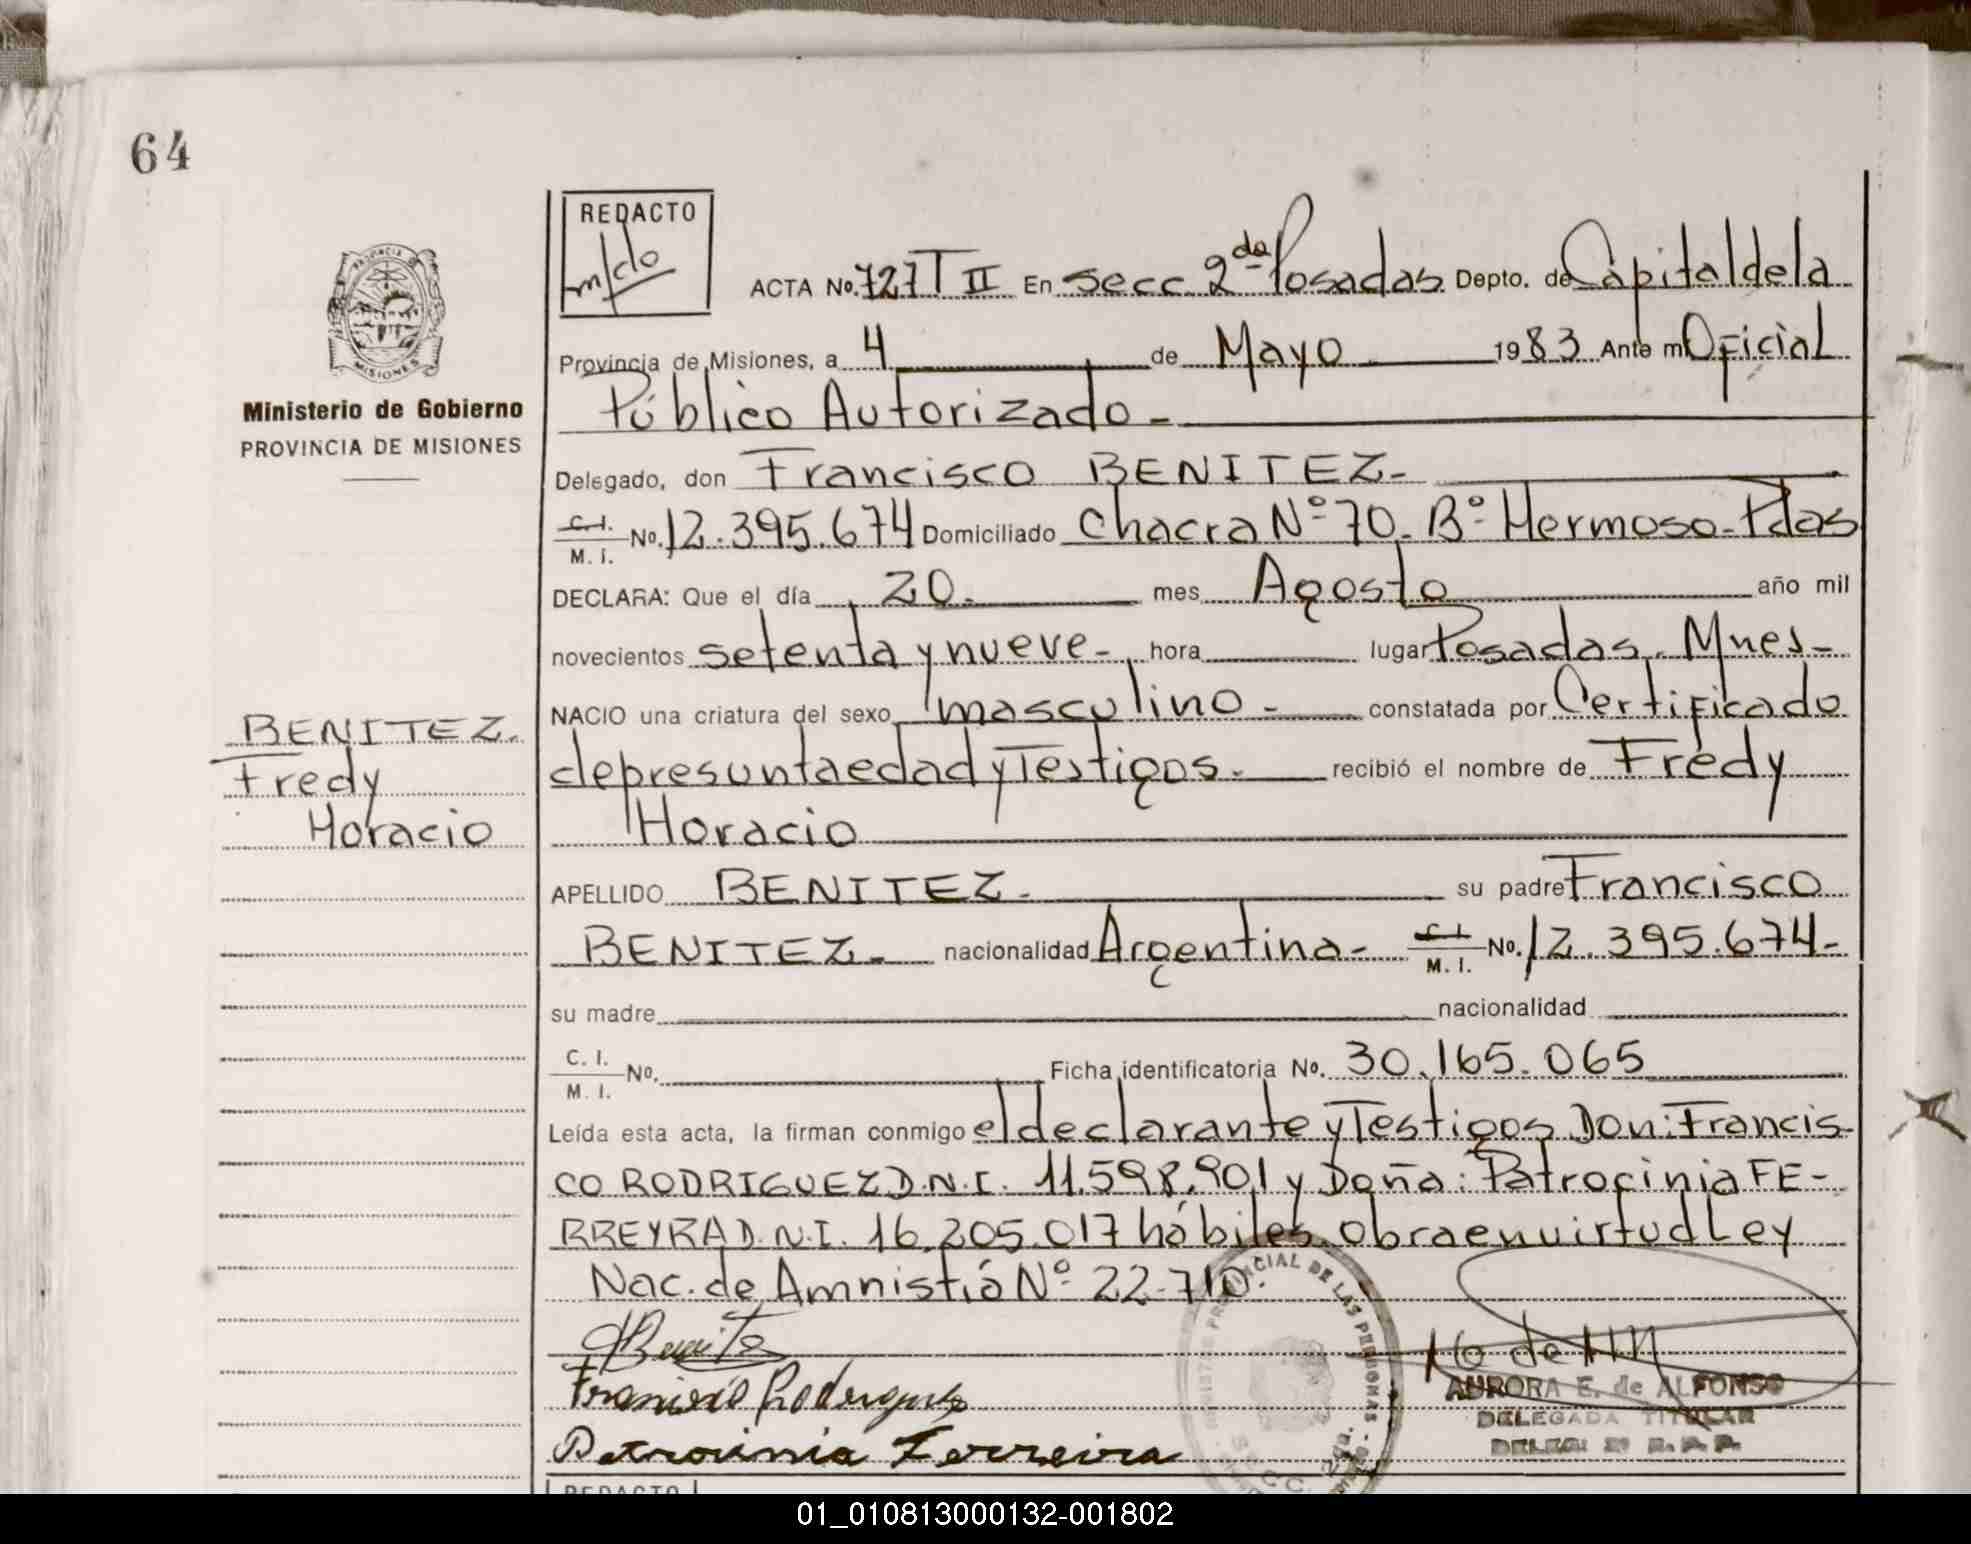 64
REDACTO
PROVINCIA DE
MISIONES
Ministerio de Gobierno
PROVINCIA DE MISIONES
ACTA No. 727 T II En secc. 2da Posadas Depto. de Capital de la
Provincia de Misiones, a 4 de Mayo 1983 Ante mi Oficial
Público Autorizado-
Delegado, don Francisco BENITEZ-
C.I. M.I. No. 12.395.674 Domiciliado Chacra Nº 70. Bº Hermoso-Pdas
DECLARA: Que el día 20- mes Agosto año mil
novecientos setenta y nueve- hora lugar Posadas. Mnes-
NACIO una criatura del sexo masculino- constatada por Certificado
de presunta edad y Testigos- recibió el nombre de Fredy
Horacio
BENITEZ.
Fredy
Horacio
APELLIDO BENITEZ- su padre Francisco
BENITEZ- nacionalidad Argentina- C.I. M.I. No. 12.395.674-
su madre nacionalidad
C.I. M.I. No. Ficha identificatoria No. 30.165.065
Leída esta acta, la firman conmigo el declarante y Testigos Don: Francis-
co RODRIGUEZ D.N.I. 11.598.901 y Doña: Patrocinia FE-
RREYRA D.N.I. 16.205.017 hábiles. obra en virtud Ley
Nac. de Amnistía Nº 22-710.
Francisco Rodriguez
Patrocinia Ferreira
AURORA E. de ALFONSO
DELEGADA TITULAR
REDACTO
01_010813000132-001802